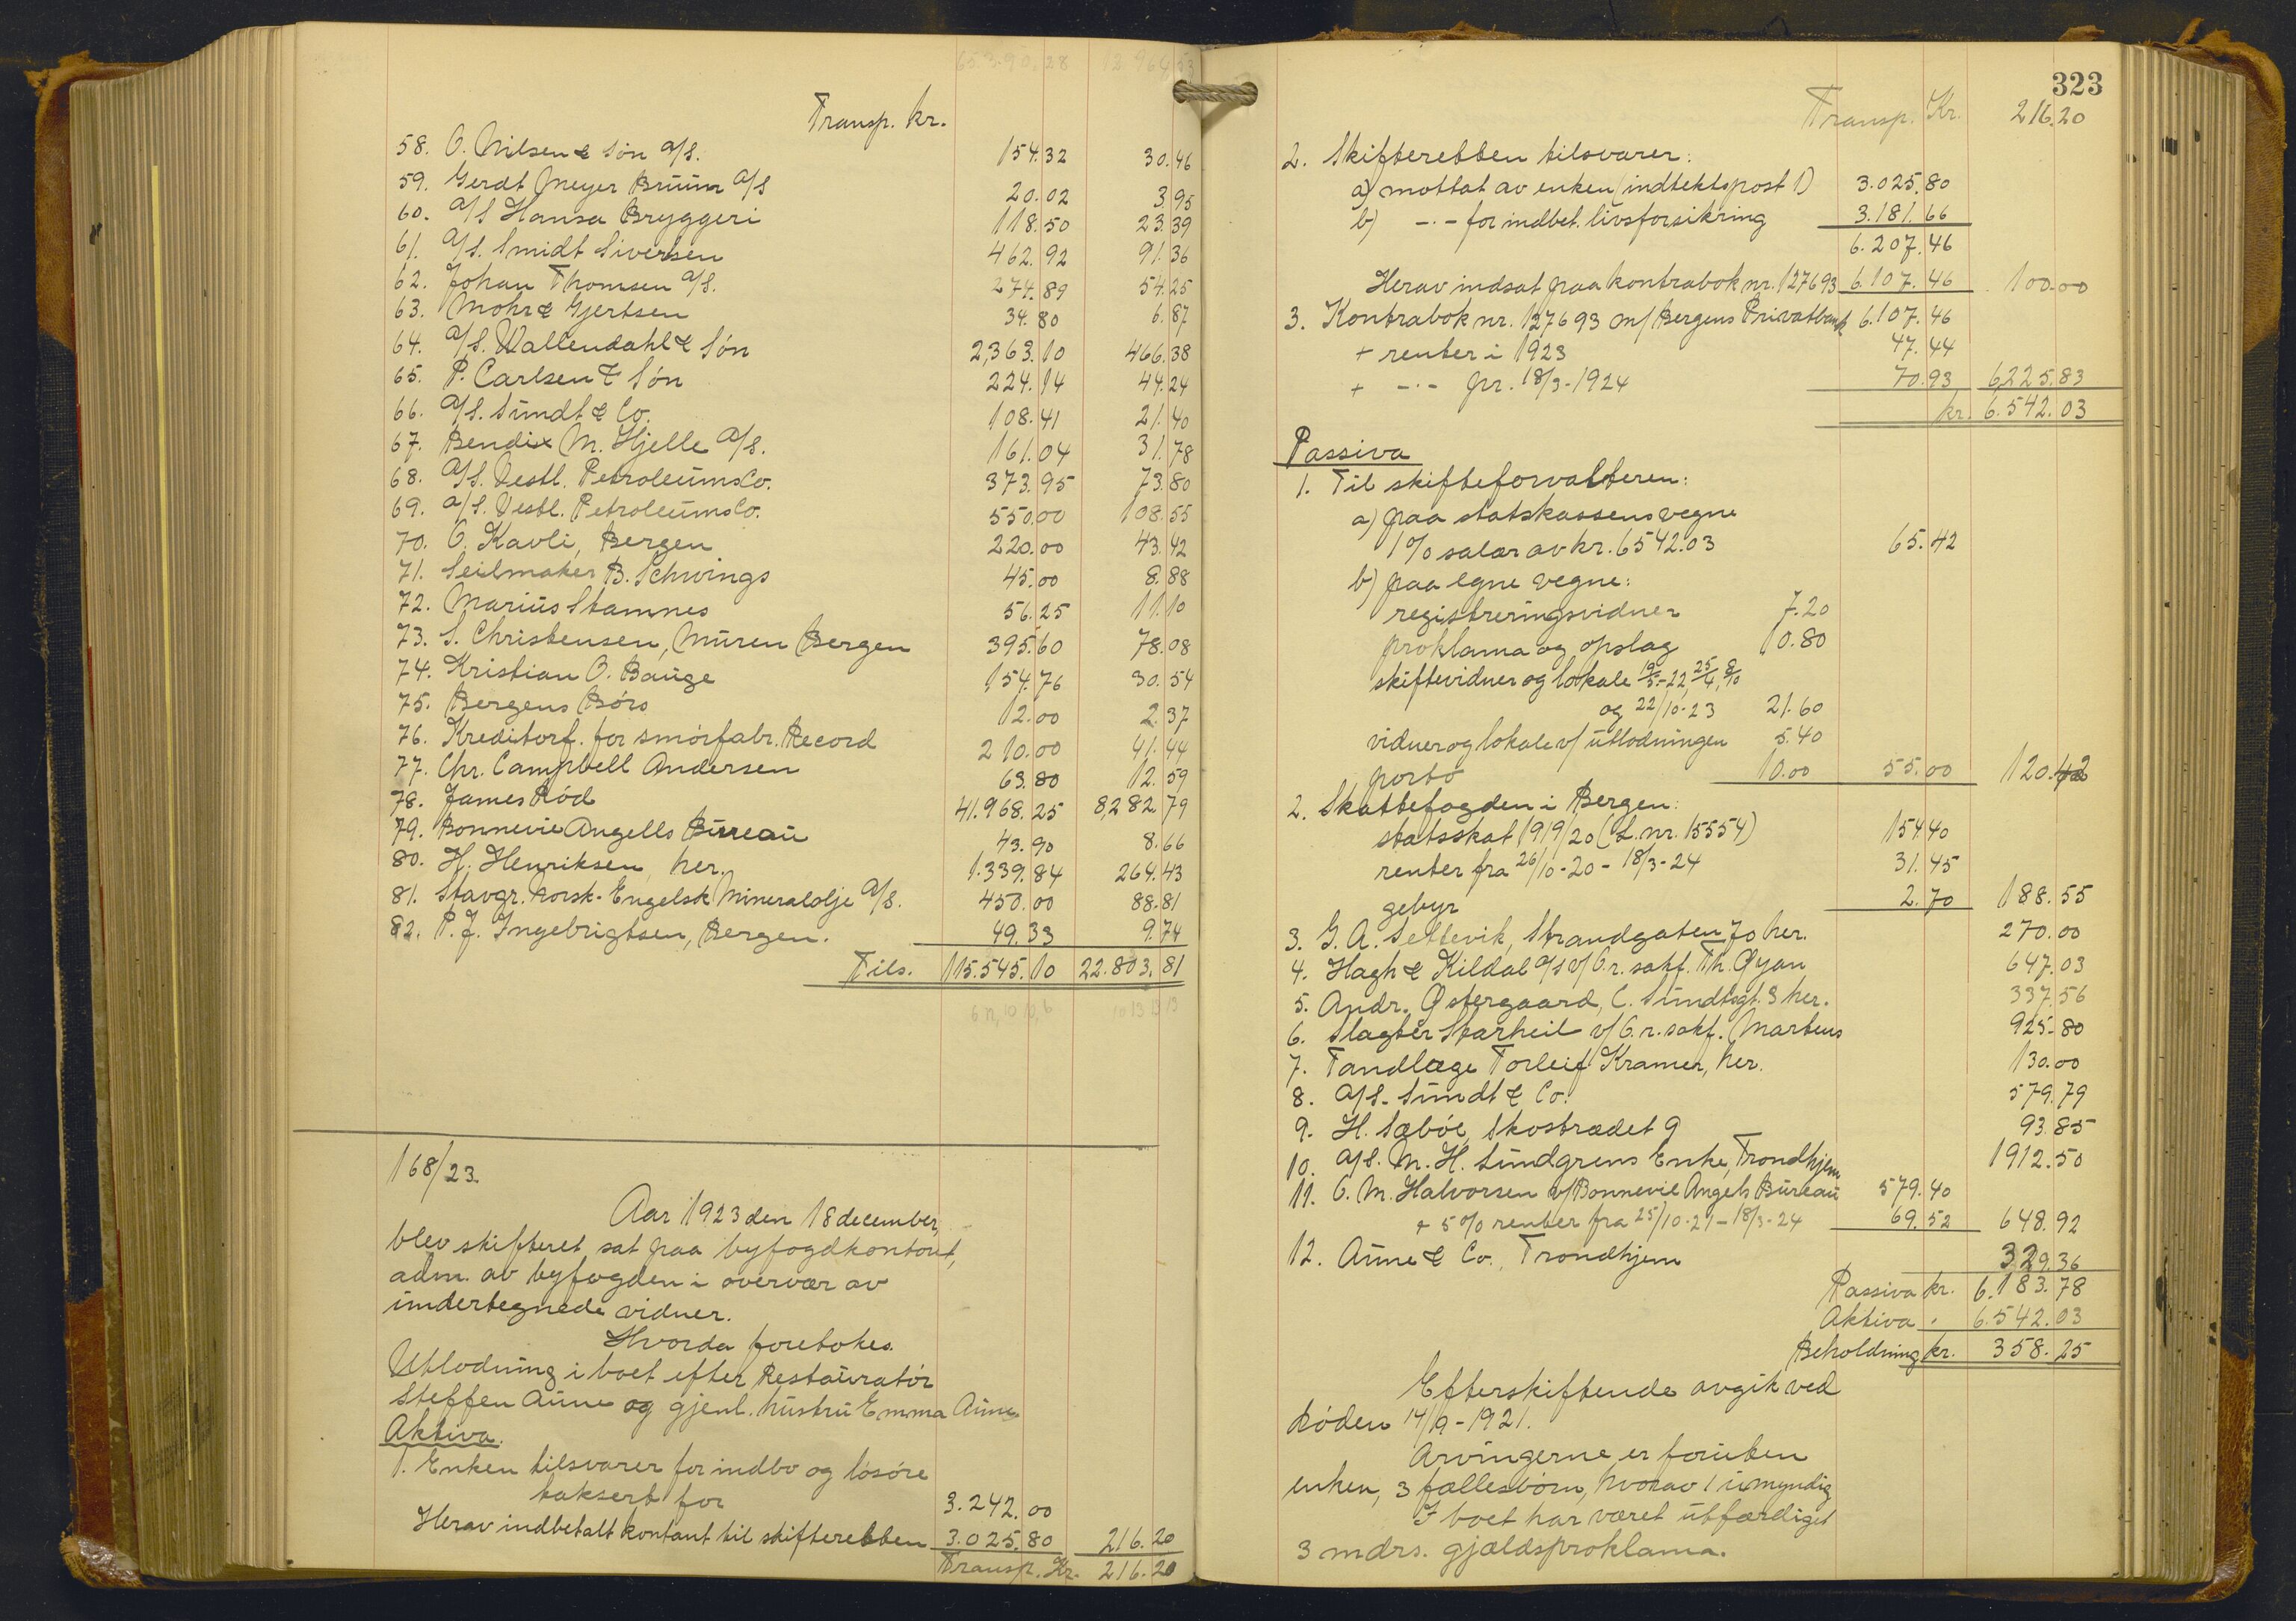 65.390.28 12.964.53
Transp. kr.
58. O. Nilsen & Søn a/s. 154.32 30.46
59. Gerdt Meyer Bruun a/s 20.02 3.95
60. a/s Hansa Bryggeri 118.50 23.39
61. a/s. Smidt Sivertsen 462.92 91.36
62. Johan Thomsen a/s. 274.89 54.25
63. Mohr & Gjertsen 34.80 6.87
64. a/s. Wallendahl & Søn 2,363.10 466.38
65. P. Carlsen & Søn 224.14 44.24
66. a/s. Sundt & Co. 108.41 21.40
67. Bendix M. Hjelle a/s. 161.04 31.78
68. a/s. Vestl. PetroleumsCo. 373.95 73.80
69. a/s. Vestl. PetroleumsCo. 550.00 108.55
70. O. Kavli, Bergen 220.00 43.42
71. Seilmaker B. Schwings 45.00 8.88
72. Marius Stamnes 56.25 11.10
73. S. Christensen, Muren Bergen 395.60 78.08
74. Kristian O. Bauge 154.76 30.54
75. Bergens Børs 12.00 2.37
76. Kreditorf. for smørfabr. Record 210.00 41.44
77. Chr. Campbell Andersen 63.80 12.59
78. James Rød 41.968.25 8,282.79
79. Bonnevie Angells Bureau 43.90 8.66
80. H. Henriksen, her. 1.339.84 264.43
81. Stavgr. Norsk-Engelsk Mineralolje a/s. 450.00 88.81
82. P. J. Ingebrigtsen, Bergen. 49.33 9.74
Tils. 115.545.10 22.803.81
168/23.
Aar 1923 den 18 december,
blev skifteret sat paa byfogdkontoret,
adm. av byfogden i overvær av
undertegnede vidner.
Hvorda foretokes.
Utlodning i boet efter Restauratør
Steffen Aune og gjenl. hustru Emma Aune
Aktiva.
1. Enken tilsvarer for indbo og løsøre
taksert for 3.242.00
Herav indbetalt kontant til skifteretten 3.025.80 216.20
Transp. Kr. 216.20
323
Transp. Kr. 216.20
2. Skifteretten tilsvarer:
a) mottat av enken (indtektspost 1) 3.025.80
b) -.- for indbet. livsforsikring 3.181.66
6.207.46
Herav indsat paa kontrabok nr. 127693 6.107.46 100.00
3. Kontrabok nr. 127693 m/ Bergens Privatbank 6.107.46
+ renter i 1923 47.44
+ -.- pr. 18/3-1924 70.93 6,225.83
kr. 6.542.03
Passiva
1. Til skifteforvalteren:
a) paa statskassens vegne
1% salær av kr. 6542.03 65.42
b) paa egne vegne:
registreringsvidner 7.20
proklama og opslag 10.80
skiftevidner og lokale 19/5-22, 25/4, 8/10
og 22/10-23 21.60
vidner og lokale v/ utlodningen 5.40
porto 10.00 55.00 120.42
2. Skattefogden i Bergen:
statsskat 1919/20 (L. nr. 15554) 154.40
renter fra 26/10-20 - 18/3-24 31.45
gebyr 2.70 188.55
3. G. A. Settevik, Strandgaten 70 her. 270.00
4. Hagh & Kildal a/s v/ O.r. sakf. Th. Øyan 647.03
5. Andr. Østergaard, C. Sundtsgt. 3 her. 337.56
6. Slagter Starheil v/ O.r. sakf. Martens 925.80
7. Tandlæge Torleif Kramer, her. 130.00
8. a/s. Sundt & Co. 579.79
9. H. Sæbøe, Skostrædet 9 93.85
10. a/s. M. H. Lundgrens Enke, Trondhjem 1912.50
11. O. M. Halvorsen v/ Bonnevie Angels Bureau 579.40
+ 5% renter fra 25/10-21 - 18/3-24 69.52 648.92
12. Aune & Co., Trondhjem 329.36
Passiva kr. 6.183.78
Aktiva " 6.542.03
Beholdning kr. 358.25
Efterskiftende avgik ved
døden 14/9-1921.
Arvingerne er foruten
enken, 3 fællesbørn, hvorav 1 umyndig
I boet har været utfærdiget
3 mdrs. gjældsproklama.